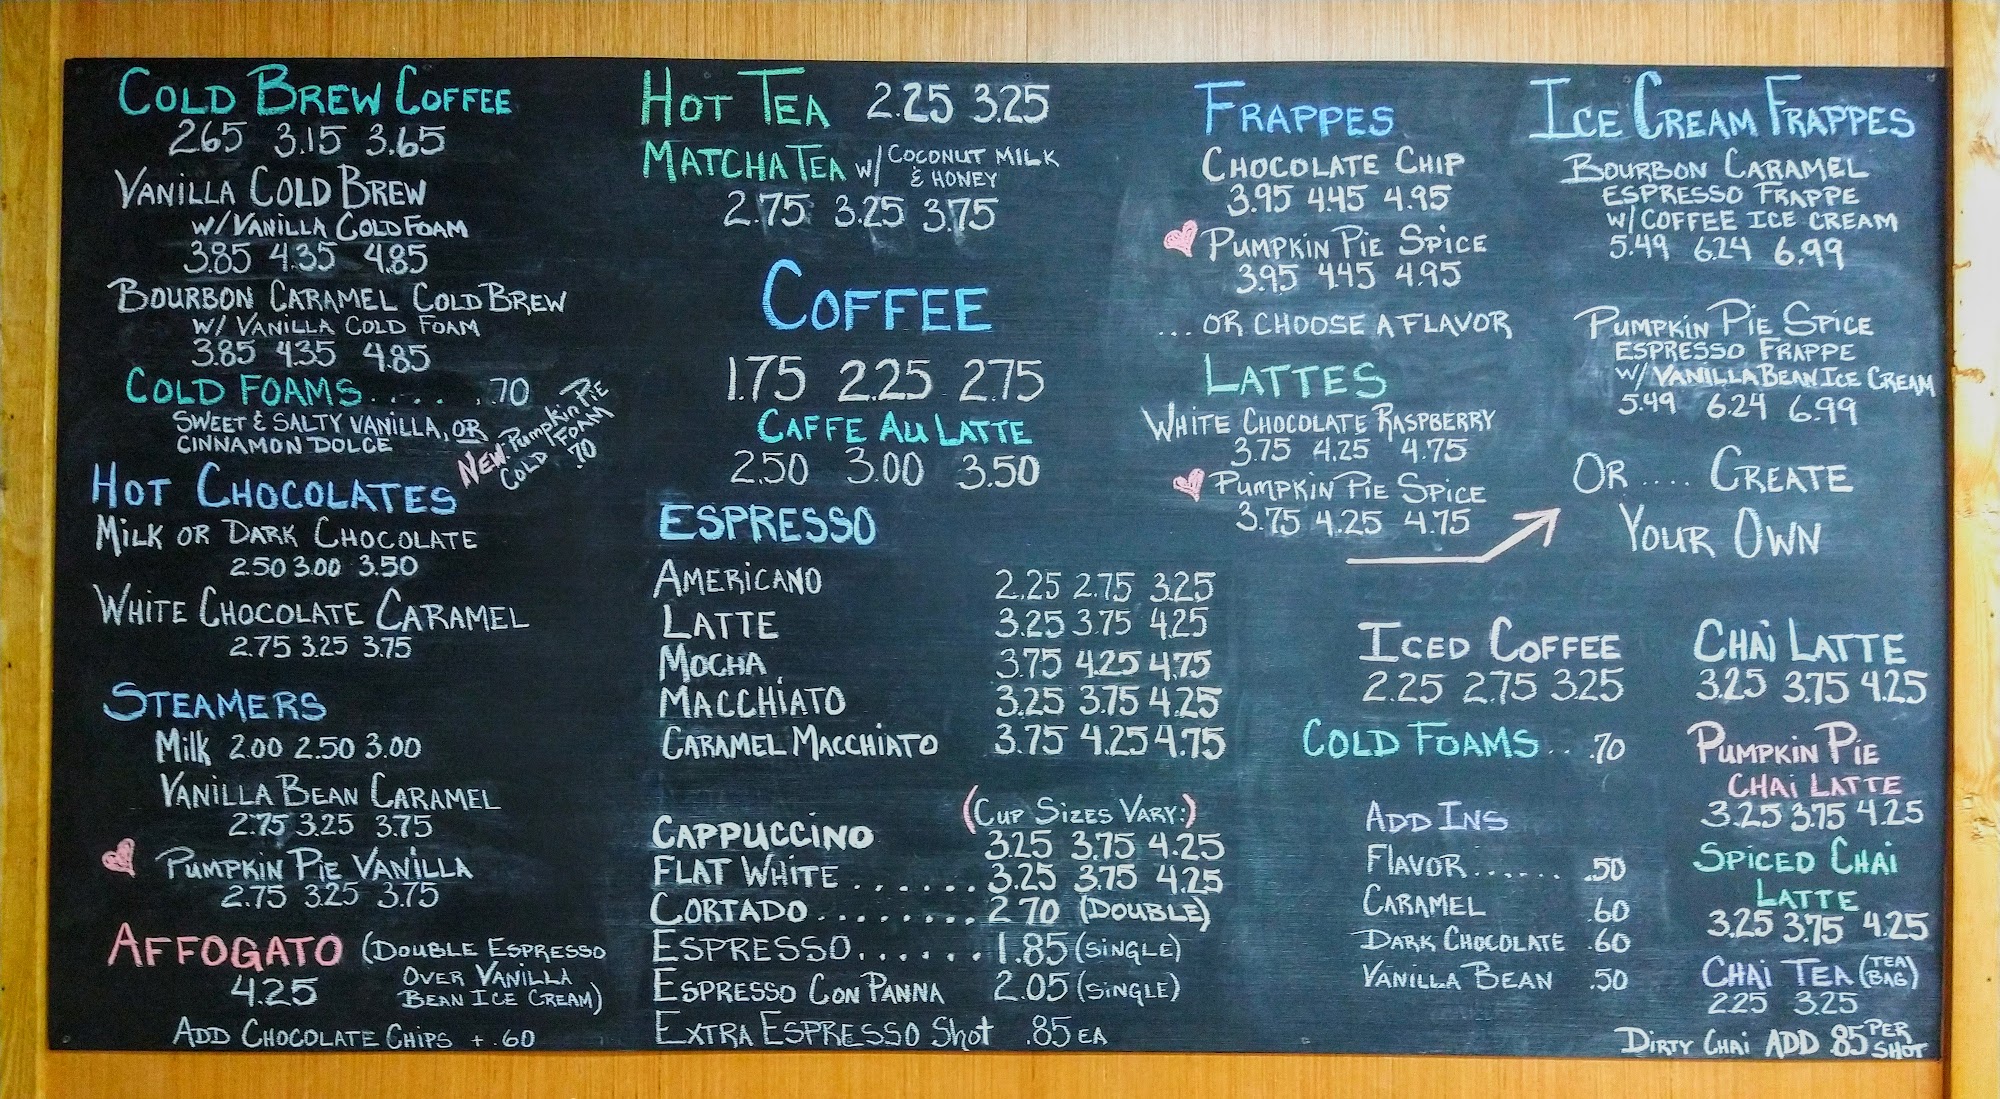 COLD BREW COFFEE
2.65 3.15 3.65
VANILLA COLD BREW
W/VANILLA COLD FOAM
3.85 4.35 4.85
BOURBON CARAMEL COLD BREW
W/ VANILLA COLD FOAM
3.85 4.35 4.85
COLD FOAMS..... .70
SWEET & SALTY VANILLA, OR
CINNAMON DOLCE
NEW-PUMPKIN PIE
COLD FOAM
.70
HOT CHOCOLATES
MILK OR DARK CHOCOLATE
2.50 3.00 3.50
WHITE CHOCOLATE CARAMEL
2.75 3.25 3.75
STEAMERS
Milk 2.00 2.50 3.00
VANILLA BEAN CARAMEL
2.75 3.25 3.75
PUMPKIN PIE VANILLA
2.75 3.25 3.75
AFFOGATO (DOUBLE ESPRESSO
4.25 OVER VANILLA
BEAN ICE CREAM)
ADD CHOCOLATE CHIPS + .60
HOT TEA 2.25 3.25
MATCHA TEA W/ COCONUT MILK
& HONEY
2.75 3.25 3.75
COFFEE
1.75 2.25 2.75
CAFFE AU LATTE
2.50 3.00 3.50
ESPRESSO
AMERICANO 2.25 2.75 3.25
LATTE 3.25 3.75 4.25
MOCHA 3.75 4.25 4.75
MACCHIATO 3.25 3.75 4.25
CARAMEL MACCHIATO 3.75 4.25 4.75
(CUP SIZES VARY:)
CAPPUCCINO 3.25 3.75 4.25
FLAT WHITE....... 3.25 3.75 4.25
CORTADO......... 2.70 (DOUBLE)
ESPRESSO....... 1.85 (SINGLE)
ESPRESSO CON PANNA 2.05 (SINGLE)
EXTRA ESPRESSO Shot .85 EA
FRAPPES
CHOCOLATE CHIP
3.95 4.45 4.95
PUMPKIN PIE SPICE
3.95 4.45 4.95
...OR CHOOSE A FLAVOR
LATTES
WHITE CHOCOLATE RASPBERRY
3.75 4.25 4.75
PUMPKIN PIE SPICE
3.75 4.25 4.75
ICE CREAM FRAPPES
BOURBON CARAMEL
ESPRESSO FRAPPE
W/COFFEE ICE CREAM
5.49 6.24 6.99
PUMPKIN PIE SPICE
ESPRESSO FRAPPE
W/ VANILLA BEAN ICE CREAM
5.49 6.24 6.99
OR .... CREATE
YOUR OWN
ICED COFFEE
2.25 2.75 3.25
COLD FOAMS... .70
ADD INS
FLAVOR...... .50
CARAMEL .60
DARK CHOCOLATE .60
VANILLA BEAN .50
CHAI LATTE
3.25 3.75 4.25
PUMPKIN PIE
CHAI LATTE
3.25 3.75 4.25
SPICED CHAI
LATTE
3.25 3.75 4.25
CHAI TEA (TEA BAG)
2.25 3.25
DIRTY CHAI ADD .85 PER SHOT